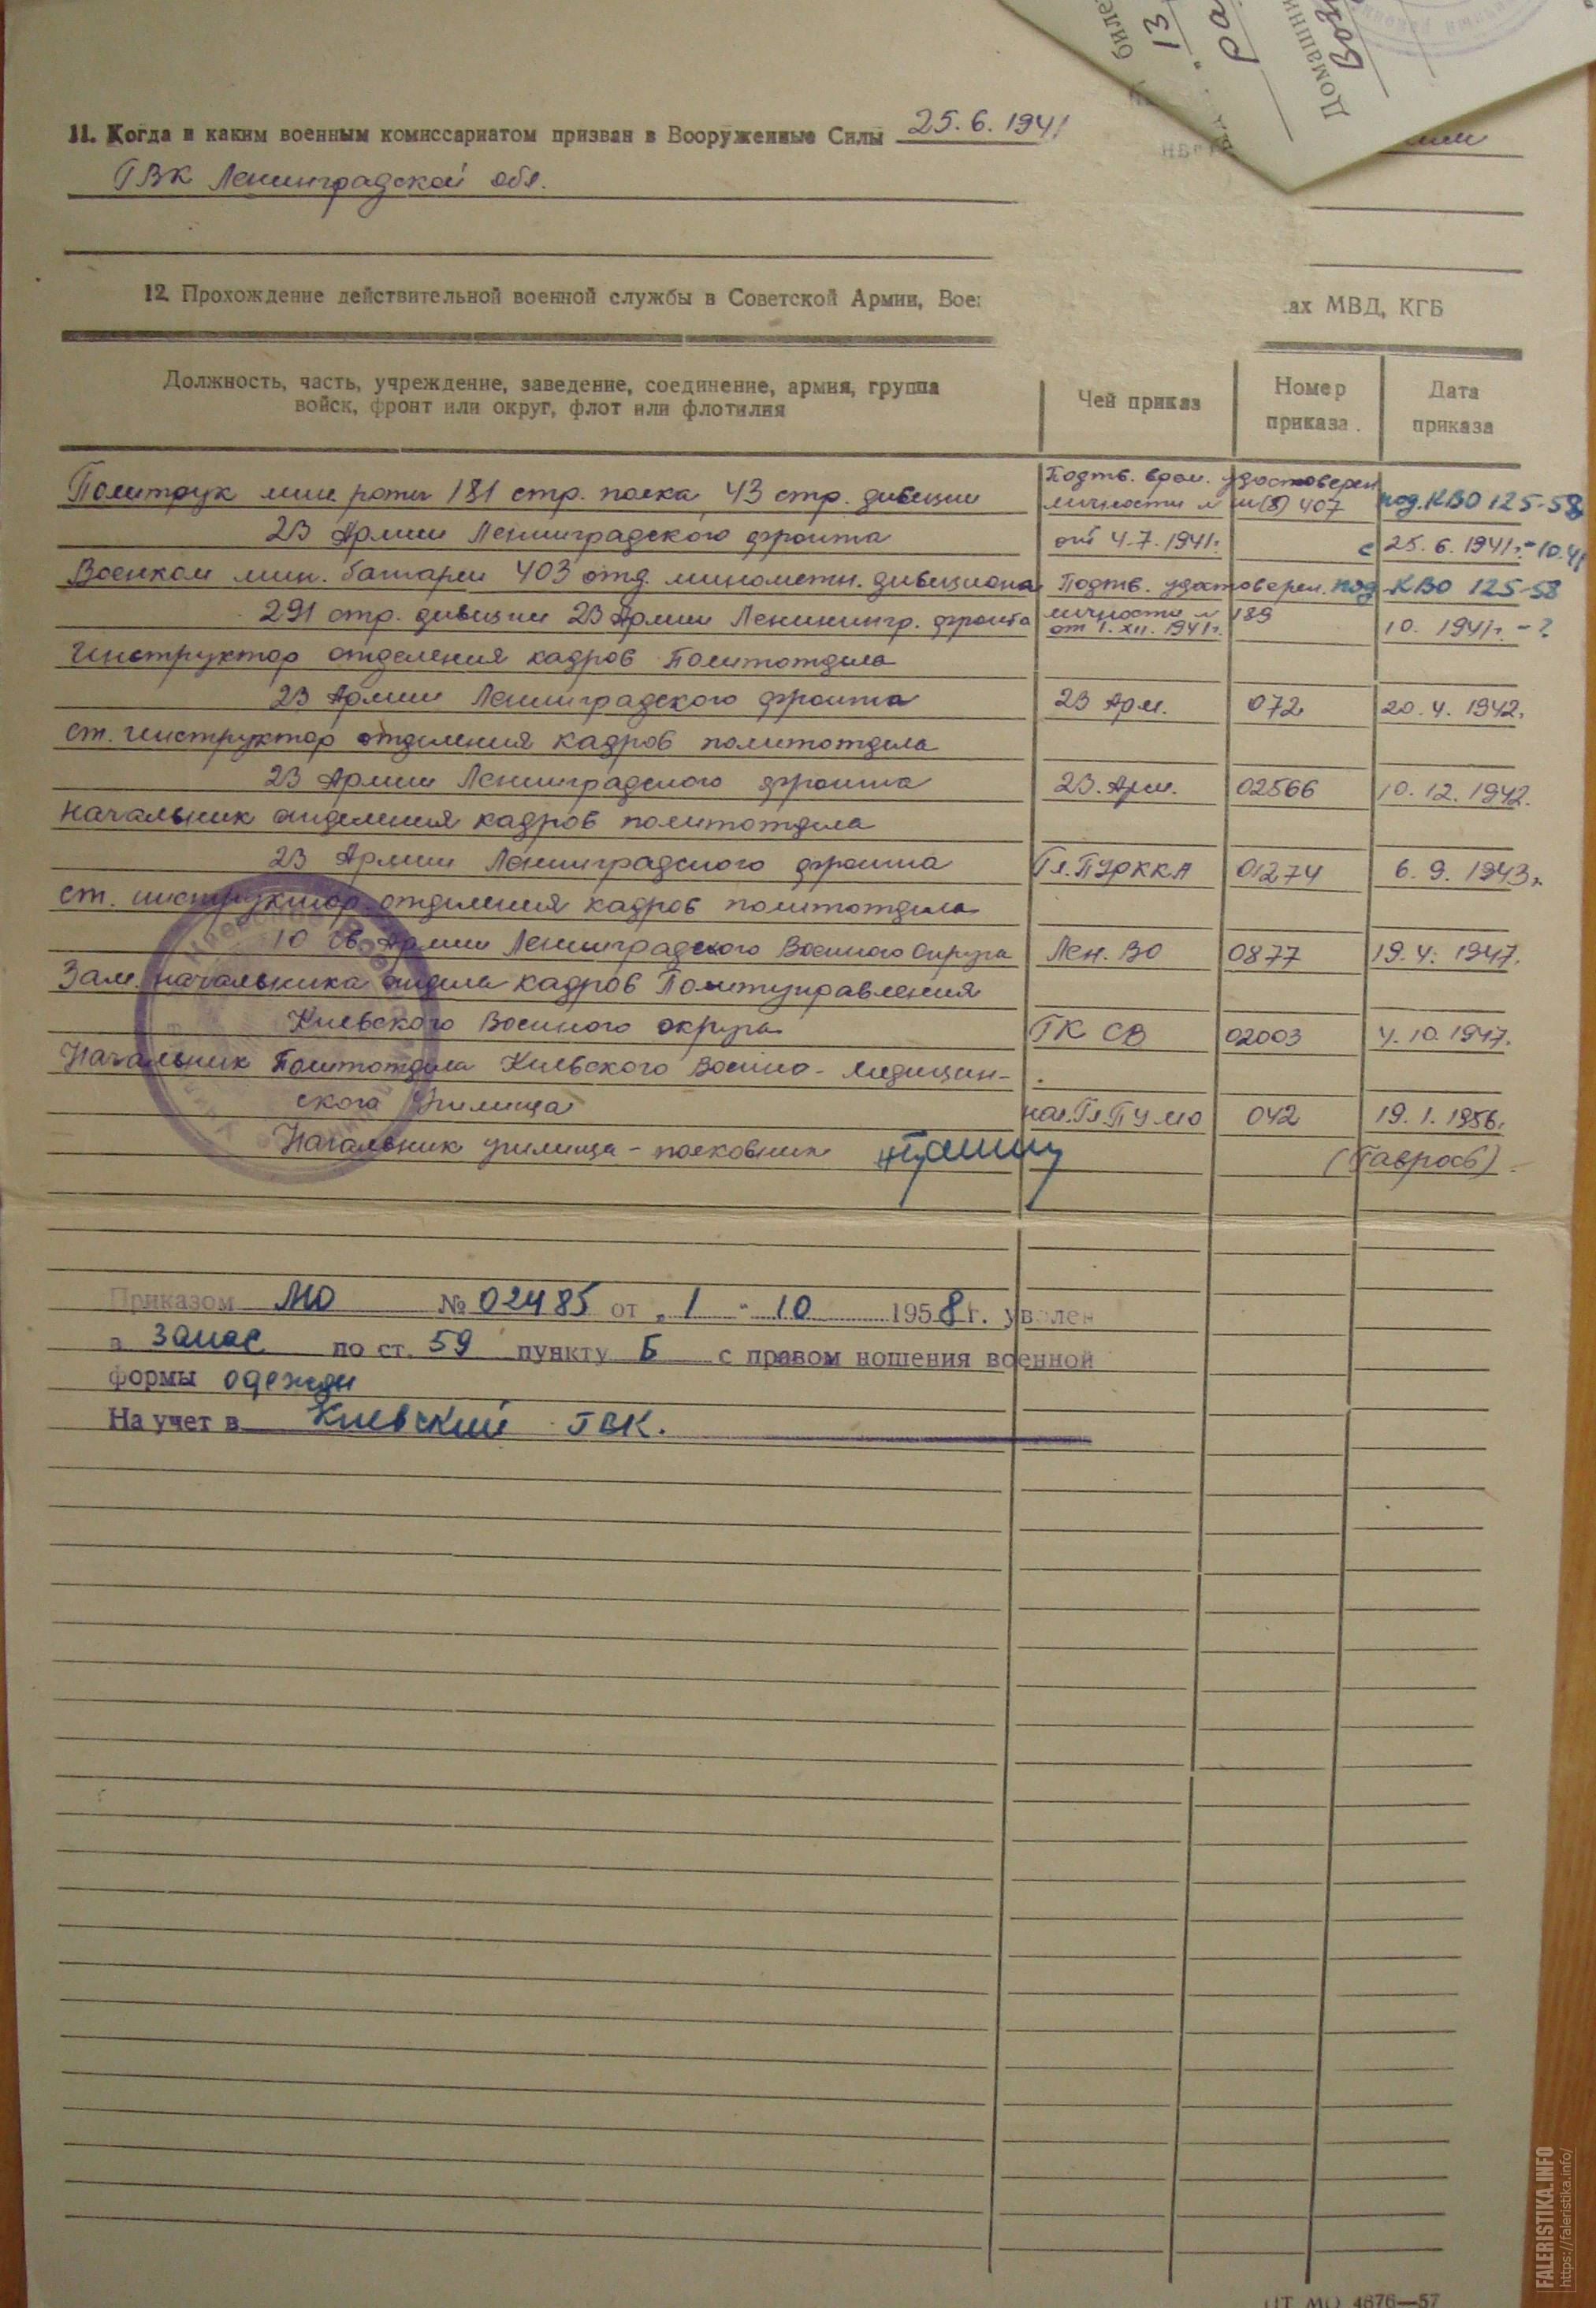 биле
13
Домашни
11. Когда и каким военным комиссариатом призван в Вооруженные Силы 25.6.1941
ГВК Ленинградской обл.
12. Прохождение действительной военной службы в Советской Армии, Вое
ах МВД, КГБ
Должность, часть, учреждение, заведение, соединение, армия, группа войск, фронт или округ, флот или флотилия
Чей приказ
Номер приказа
Дата приказа
Политрук мин роты 181 стр. полка 43 стр. дивизии
Подтв. врем. удостоверен личности № 407
под. КВО 125-58
23 Армии Ленинградского фронта от 4.7.1941г. с 25.6.1941г.-10.41
Военком мин. батареи 403 отд. минометн. дивизиона Подтв. удостоверен. под КВО 125-58
291 стр. дивизии 23 Армии Ленинингр. фронта личности № 189 от 1.XII.1941г. 10.1941г.-?
Инструктор отделения кадров Политотдела
23 Армии Ленинградского фронта 23 Арм. 072 20.4.1942.
ст. инструктор отделения кадров политотдела
23 Армии Ленинградского фронта 23.Арм. 02566 10.12.1942.
Начальник отделения кадров политотдела
23 Армии Ленинградского фронта Гл.ПУРККА 01274 6.9.1943г.
ст. инструктор отделения кадров политотдела
10 гв. Армии Ленинградского Военного Округа Лен.ВО 0877 19.4.1947.
Зам. начальника отдела кадров Политуправления
Киевского Военного округа ГК СВ 02003 4.10.1947.
Начальник Политотдела Киевского Военно-Медицин-
ского Училища нач.Гл.ПУ МО 042 19.1.1956.
Начальник училища - полковник (Гавров)
Приказом МО № 02485 от „1" 10 1958г. увлен
в запас по ст. 59 пункту Б с правом ношения военной
формы одежды
На учет в Киевский ГВК.
ОТ МО 4676—57
FALERISTIKA.INFO
https://faleristika.info/